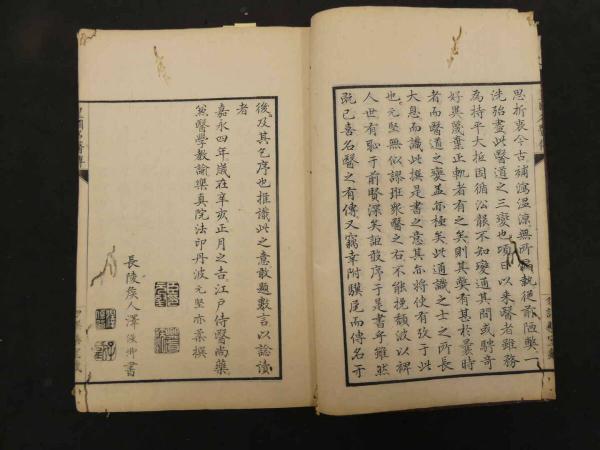 思折衷今古補瀉溫涼無所偏執從前陋藥一
洗殆盡此醫道之三變也項日以來醫者雖務
為持平大抵因循
不知變通其間或騁奇
好異蔑棄正軌者有之矣則其藥有甚於曩時
者而醫道之變
極矣此通識之士之所長
大息而識此撰是書之意其亦將使有攷于此
也元堅無似謬班眾醫之右不能挽頹波以裨
人世有恥于前賢深矣詎敢序于是書乎雖然
既已喜名醫之有傳又竊幸附驥尾而傳名于
後及其乞序也推識此之意敢題數言以諗讀
者
嘉永四年歲在辛亥正月之吉江戶侍醫尚藥
兼醫學教諭樂真院法印丹波元堅亦柔撰
長陵侯人澤俊卿書